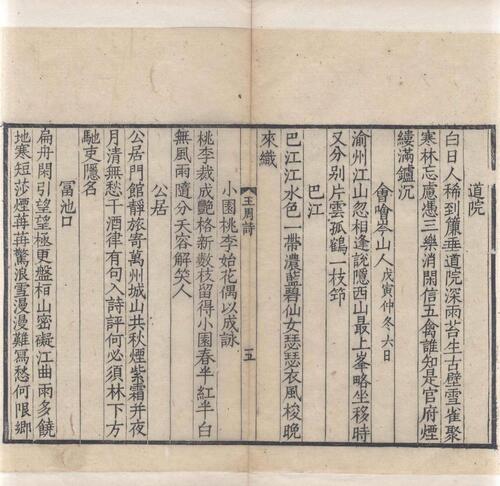 道院
白日人稀到簾垂道院深雨苔生古壁雪雀聚
寒林忘慮憑三樂消閑信五禽誰知是官府煙
縷滿鑪沉
會噲岑山人戊寅仲冬六日
渝州江山忽相逢說隱西山最上峯略坐移時
又分別片雲孤鶴一枝筇
巴江
巴江江水色一帶濃藍碧仙女瑟瑟衣風梭晚
來織
王周詩
五
小園桃李始花偶以成詠
桃李栽成艷格新數枝留得小園春半紅半白
無風雨隨分夭容解笑人
公居
公居門館靜旅寄萬州城山共秋煙紫霜并夜
月清無愁干酒律有句入詩評何必須林下方
馳吏隱名
富池口
扁舟閑引望望極更盤桓山密礙江曲雨多饒
地寒短莎煙苒苒驚浪雪漫漫難寫愁何限鄉